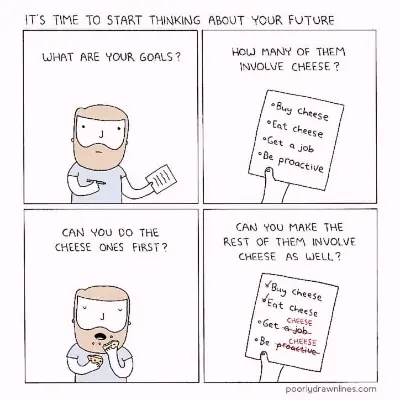 IT'S TIME TO START THINKING ABOUT YOUR FUTURE
WHAT ARE YOUR GOALS?
HOW MANY OF THEM
INVOLVE CHEESE?
•Buy cheese
•Eat cheese
•Get a job
•Be proactive
CAN YOU DO THE
CHEESE ONES FIRST?
CAN YOU MAKE THE
REST OF THEM INVOLVE
CHEESE AS WELL?
✓Buy cheese
✓Eat cheese
CHEESE
•Get a job
CHEESE
•Be proactive
poorlydrawnlines.com